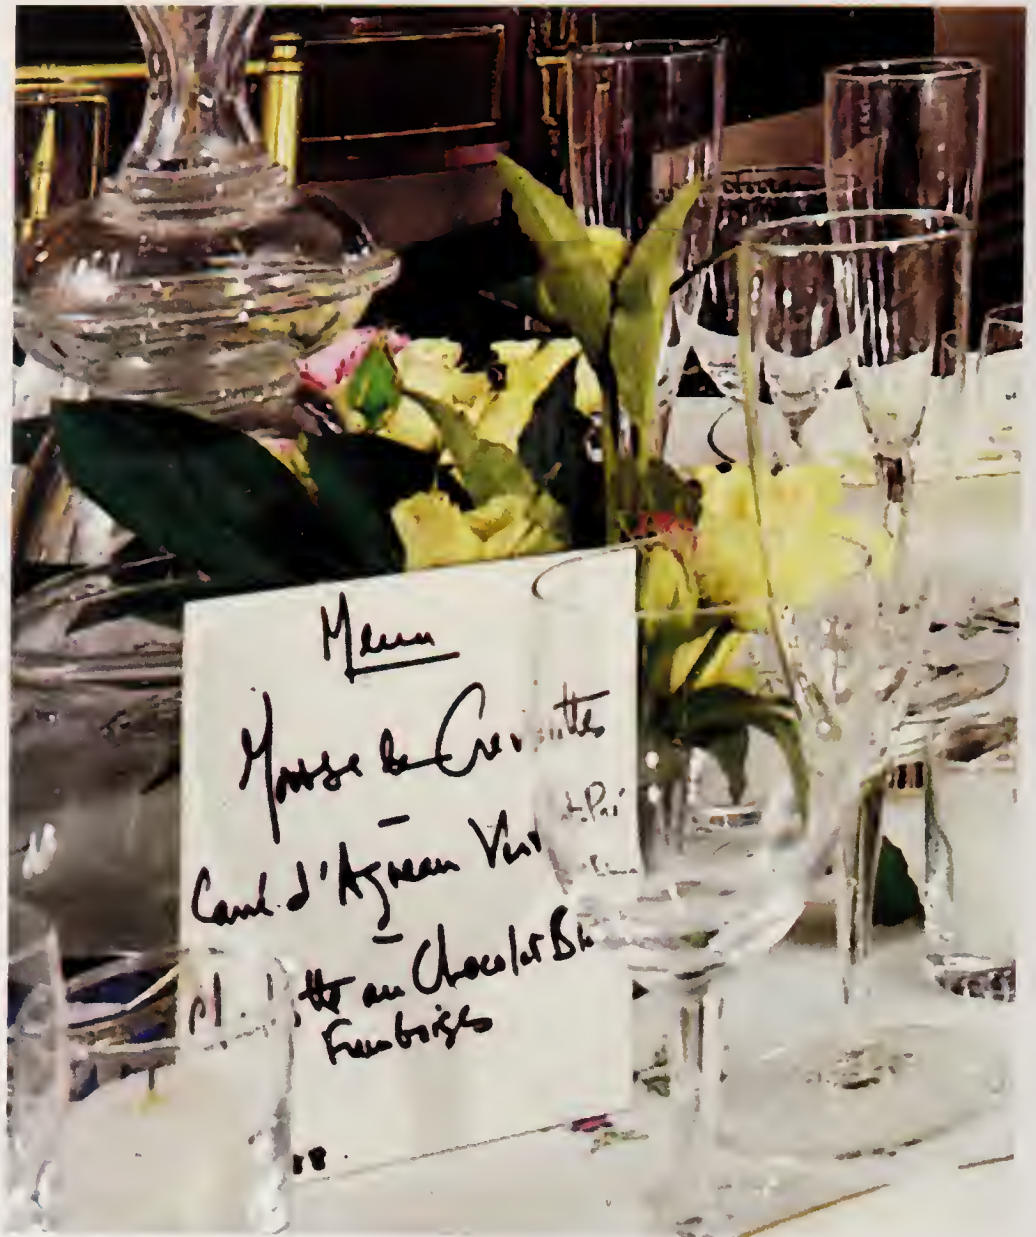 Menu
Mousse de Crevettes
Carré d'Agneau Vert
au Chocolat
Framboises